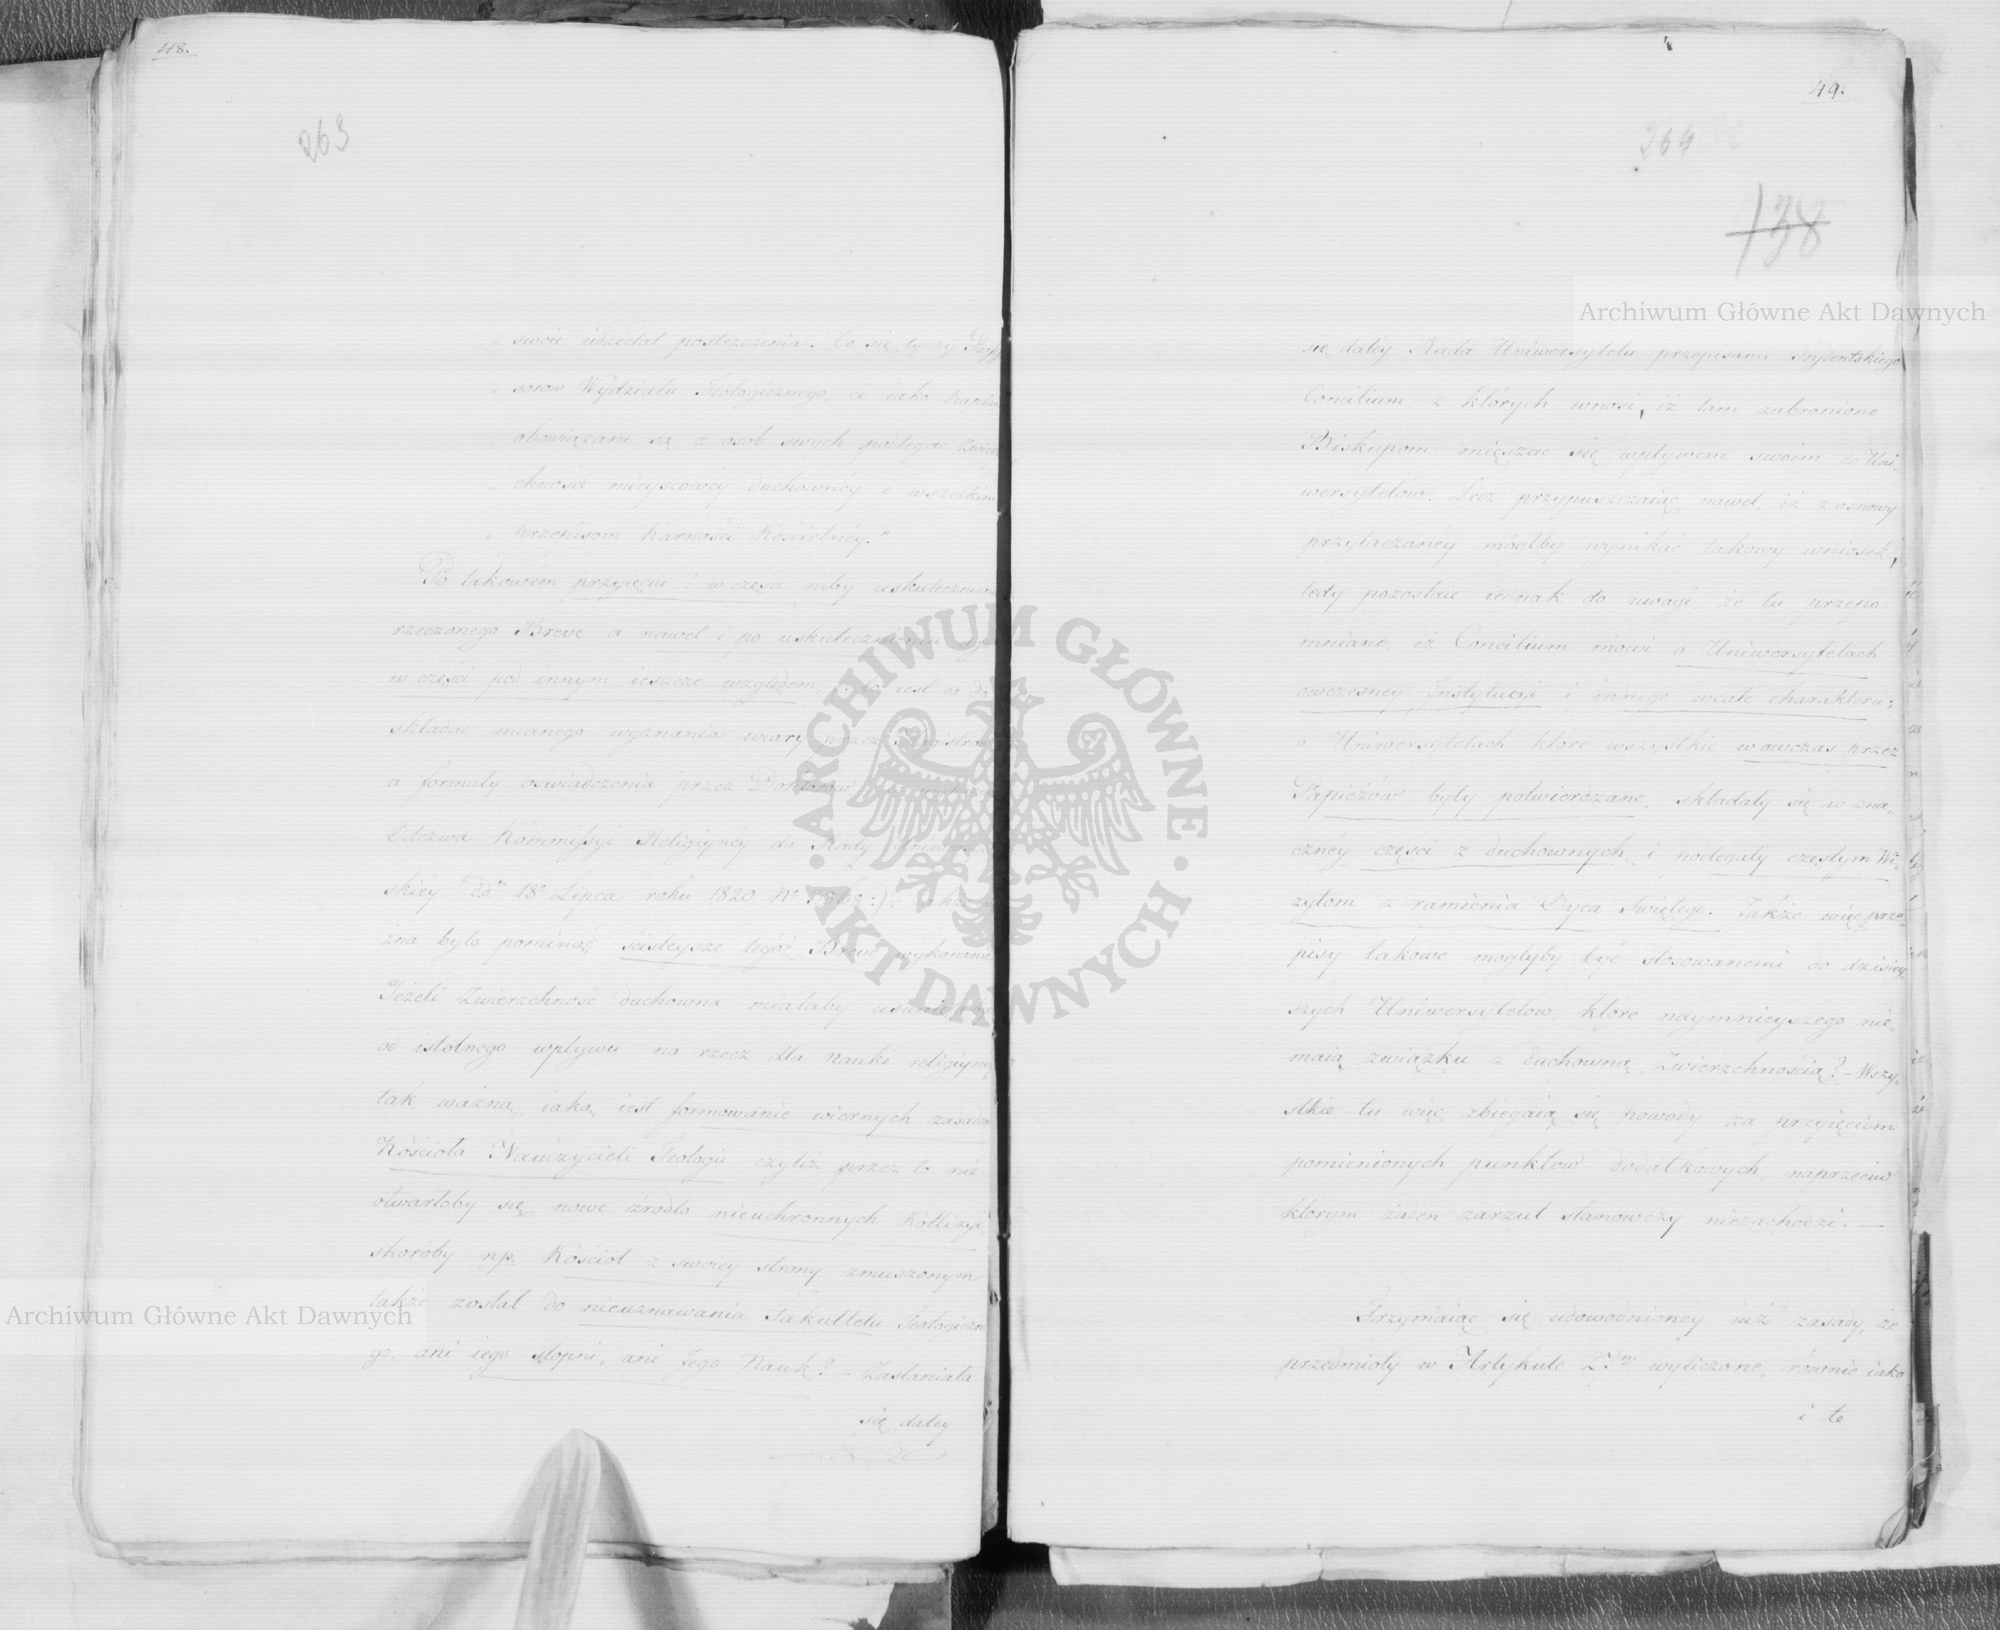 48.
263
„ swoie udzielał postrzeżenia. Co się tyczy Profes
„ sorów Wydziału Teologicznego, ci iako Kapłani
„ obowiązani są z osób swych podlegać Zwierz
„ chności mieyscowey duchowney i wszelkim
„ przepisom Karności Kościelnéy."
Po takowém przyjęciu i w części niby uskutecznieniu
rzeczonego Breve, a nawet i po uskutecznieniu
w części pod innym ieszcze względem, to iest co do
składać mianego wyznania wiary przez
a formuły oświadczenia przez Doktorów
Odezwa Kommissyi Religiyney do Rady
skiéy dd. 18o Lipca roku 1820 No
żna było pominąć ściśleysze tegoż Breve wykonanie
Jeżeli Zwierzchność duchowna miałaby
od istotnego wpływu na rzecz dla nauki religiyney
tak ważną, iaką iest formowanie wiernych zasadom
Kościoła Nauczycieli Teologii czyliż przez to nie
otwarłoby się nowe źrodło nieuchronnych Kollizyi
skoroby np. Kościół z swoiey strony zmuszonym
także został do nieuznawania Fakultetu Teologiczne
go, ani iego stopni, ani Jego Nauk? – Zasłaniała
się daley
49.
264
138
Archiwum Główne Akt Dawnych
się daléy Rada Uniwersytetu przepisami Trydentskiego
Concilium z których wnosi, iż tam zabroniono
Biskupom mięszać się wpływem swoim do Uni„
wersytetów. Lecz przypuszczaiąc nawet, iż z osnowy
przytaczanéy mógłby wynikać takowy wniosek,
tedy pozostaie iednak do uwagi, że tu przepo
mniano, iż Concilium mówi o Uniwersytetach
owczesnéy Instytucyi i innego wcale charakteru;
o Uniwersytetach które wszystkie wówczas przez
Papieżów były potwierdzane, składały się w zna„
cznéy części z duchownych, i podlegały częstym Wi„
zytom z ramienia Oyca Świętego. Jakże więc prze„
pisy takowe mogłyby być stosowanemi do dzisiey
szych Uniwersytetów, które naymnieyszego nie„
maią związku z duchowną Zwierzchnością? – Wszy„
stkie tu więc zbiegaią się powody za przyięciem
pomienionych punktów dodatkowych naprzeciw
ktorym żaden zarzut stanowczy niezachodzi. —
Trzymaiąc się udowodnioney iuż zasady, że
przedmioty w Artykule 2gim wyliczone, równie iako
i te
ARCHIWUM GŁÓWNE
AKT DAWNYCH
Archiwum Główne Akt Dawnych